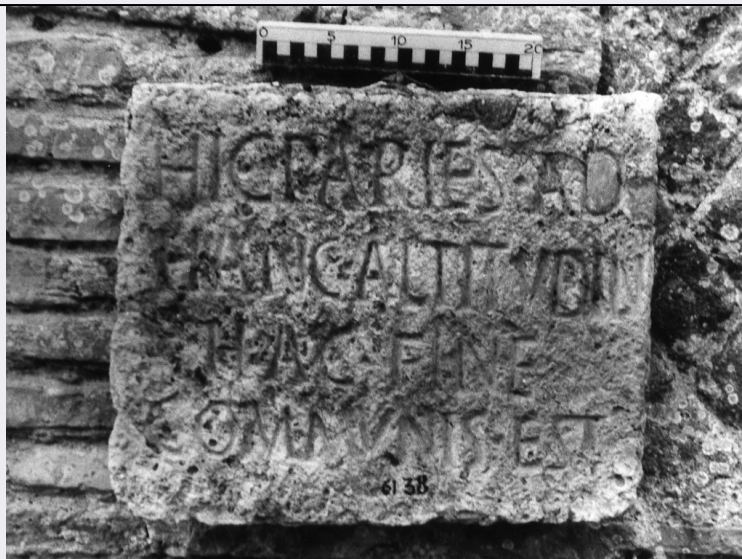 0 5 10 15 20
HIC PARIES AD
HANC ALTITVDIN
HAC FINE
COMMVNIS EST
6138